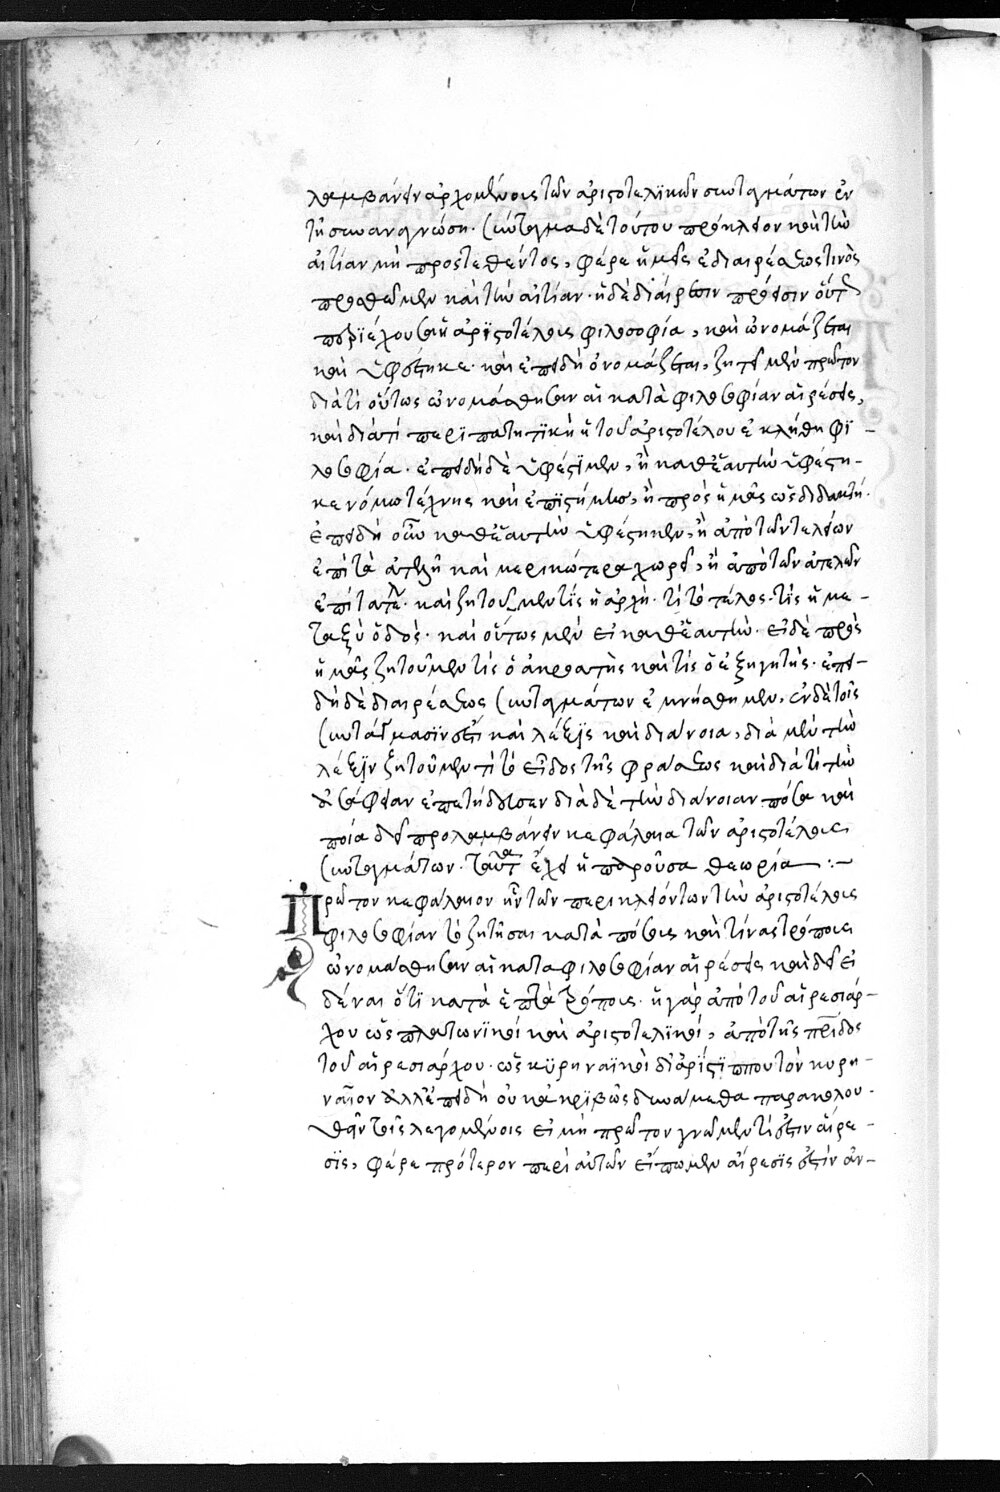 λαμβάνειν ἀρχομένοις τῶν ἀριστοτελικῶν συνταγμάτων ἐν
τῇ συναναγνώσῃ. συνταγμα δὲ τούτου πρόκλειον καὶ τὴν
αἰτίαν μὴ προστεθέντος, φέρε ἡμεῖς ἐ διαιρέσεως τινὸς
προσθῶμεν καὶ τὴν αἰτίαν. ἡ δὲ διαίρεσιν πρόεισιν οὕτω
περιέχουσιν ἡ ἀριστοτέλους φιλοσοφία, καὶ ὠνομάζεται
καὶ ὑφέστηκε. καὶ ἐπειδὴ ὀνομάζεται, ζητοῦμεν πρῶτον
διατὶ οὕτως ὠνομάσθησαν αἱ κατὰ φιλοσοφίαν αἱρέσεις,
καὶ διατί περιπατητικὴ ἡ τοῦ ἀριστοτέλου ἐκλήθη φι-
λοσοφία. ἐπειδὴ δὲ ὑφέστηκεν, ἢ καθ' ἑαυτὴν ὑφέστη-
κεν ὁμωτέχνης καὶ ἐπιστήμην, ἢ πρὸς ἡμᾶς ὡς διδακτή.
ἐπειδὴ οὖν καθ' ἑαυτὴν ὑφέστηκεν, ἢ ἀπὸ τῶν τελείων
ἐπὶ τὰ ἀτελῆ καὶ μερικώτερα χωρεῖ, ἢ ἀπὸ τῶν ἀτελῶν
ἐπὶ τὰ τελ. καὶ ζητοῦμεν τίς ἡ ἀρχή. τί τὸ τέλος. τίς ἡ με-
ταξὺ ὁδός. καὶ οὕτως μὲν εἰ καθ' ἑαυτήν. εἰ δὲ πρὸς
ἡμᾶς ζητοῦμεν τίς ὁ ἀκροατὴς καὶ τίς ὁ ἐξηγητής. ἐπει-
δὴ δὲ διαιρέσεως συνταγμάτων ἐμνήσθημεν, ἐν δὲ τοῖς
συντάγμασίν ἐστι καὶ λέξις καὶ διάνοια, διὰ μὲν τὴν
λέξιν ζητοῦμεν τί τὸ εἶδος τῆς φράσεως καὶ διατὶ τὴν
ἀσάφειαν ἐπετήδευσεν διὰ δὲ τὴν διάνοιαν πόσα καὶ
ποῖα δεῖ προλαμβάνειν κεφάλαια τῶν ἀριστοτέλους
συνταγμάτων. ταῦτα ἔχει ἡ παροῦσα θεωρία :~
Πρῶτον κεφάλαιον ἦν τῶν περικλειόντων τὴν ἀριστοτέλους
φιλοσοφίαν τὸ ζητῆσαι κατὰ πόσους καὶ τίνας τρόπους
ὠνομάσθησαν αἱ κατα φιλοσοφίαν αἱρέσεις καὶ δεῖ εἰ
δέναι ὅτι κατὰ ἑπτὰ τρόπους. ἢ γὰρ ἀπὸ τοῦ αἱρεσιάρ-
χου ὡς πλατωνικοί καὶ ἀριστοτελικοί, ἀπὸ τῆς πρίδος
τοῦ αἱρεσιάρχου. ὡς κυρηναϊκοὶ δι' ἀρίστιππου τὸν κυρη-
ναῖον ἀλλ' ἐπειδὴ οὐκ ἀκριβῶς δυνάμεθα παρακολου-
θεῖν τοῖς λεγομένοις εἰ μὴ πρῶτον γνῶμεν τί ἐστιν αἵρε-
σις, φέρε πρότερον περὶ αὐτῶν εἴπωμεν αἵρεσις ἐστὶν ἀν-